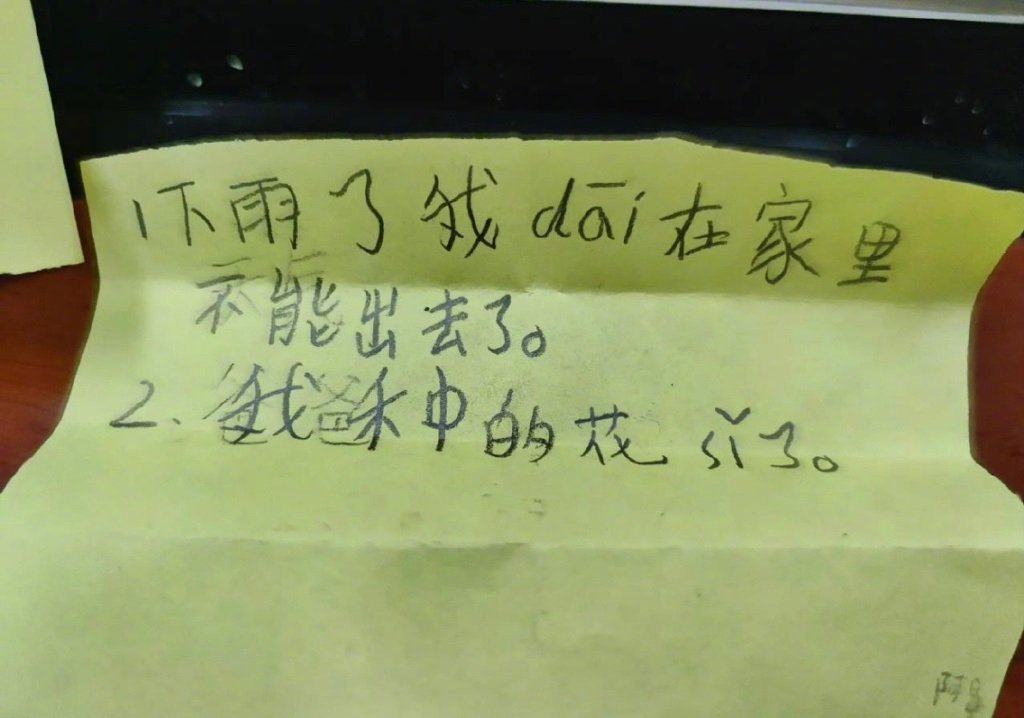 1下雨了我dāi在家里
不能出去了。
2.我禾中的花sǐ了。